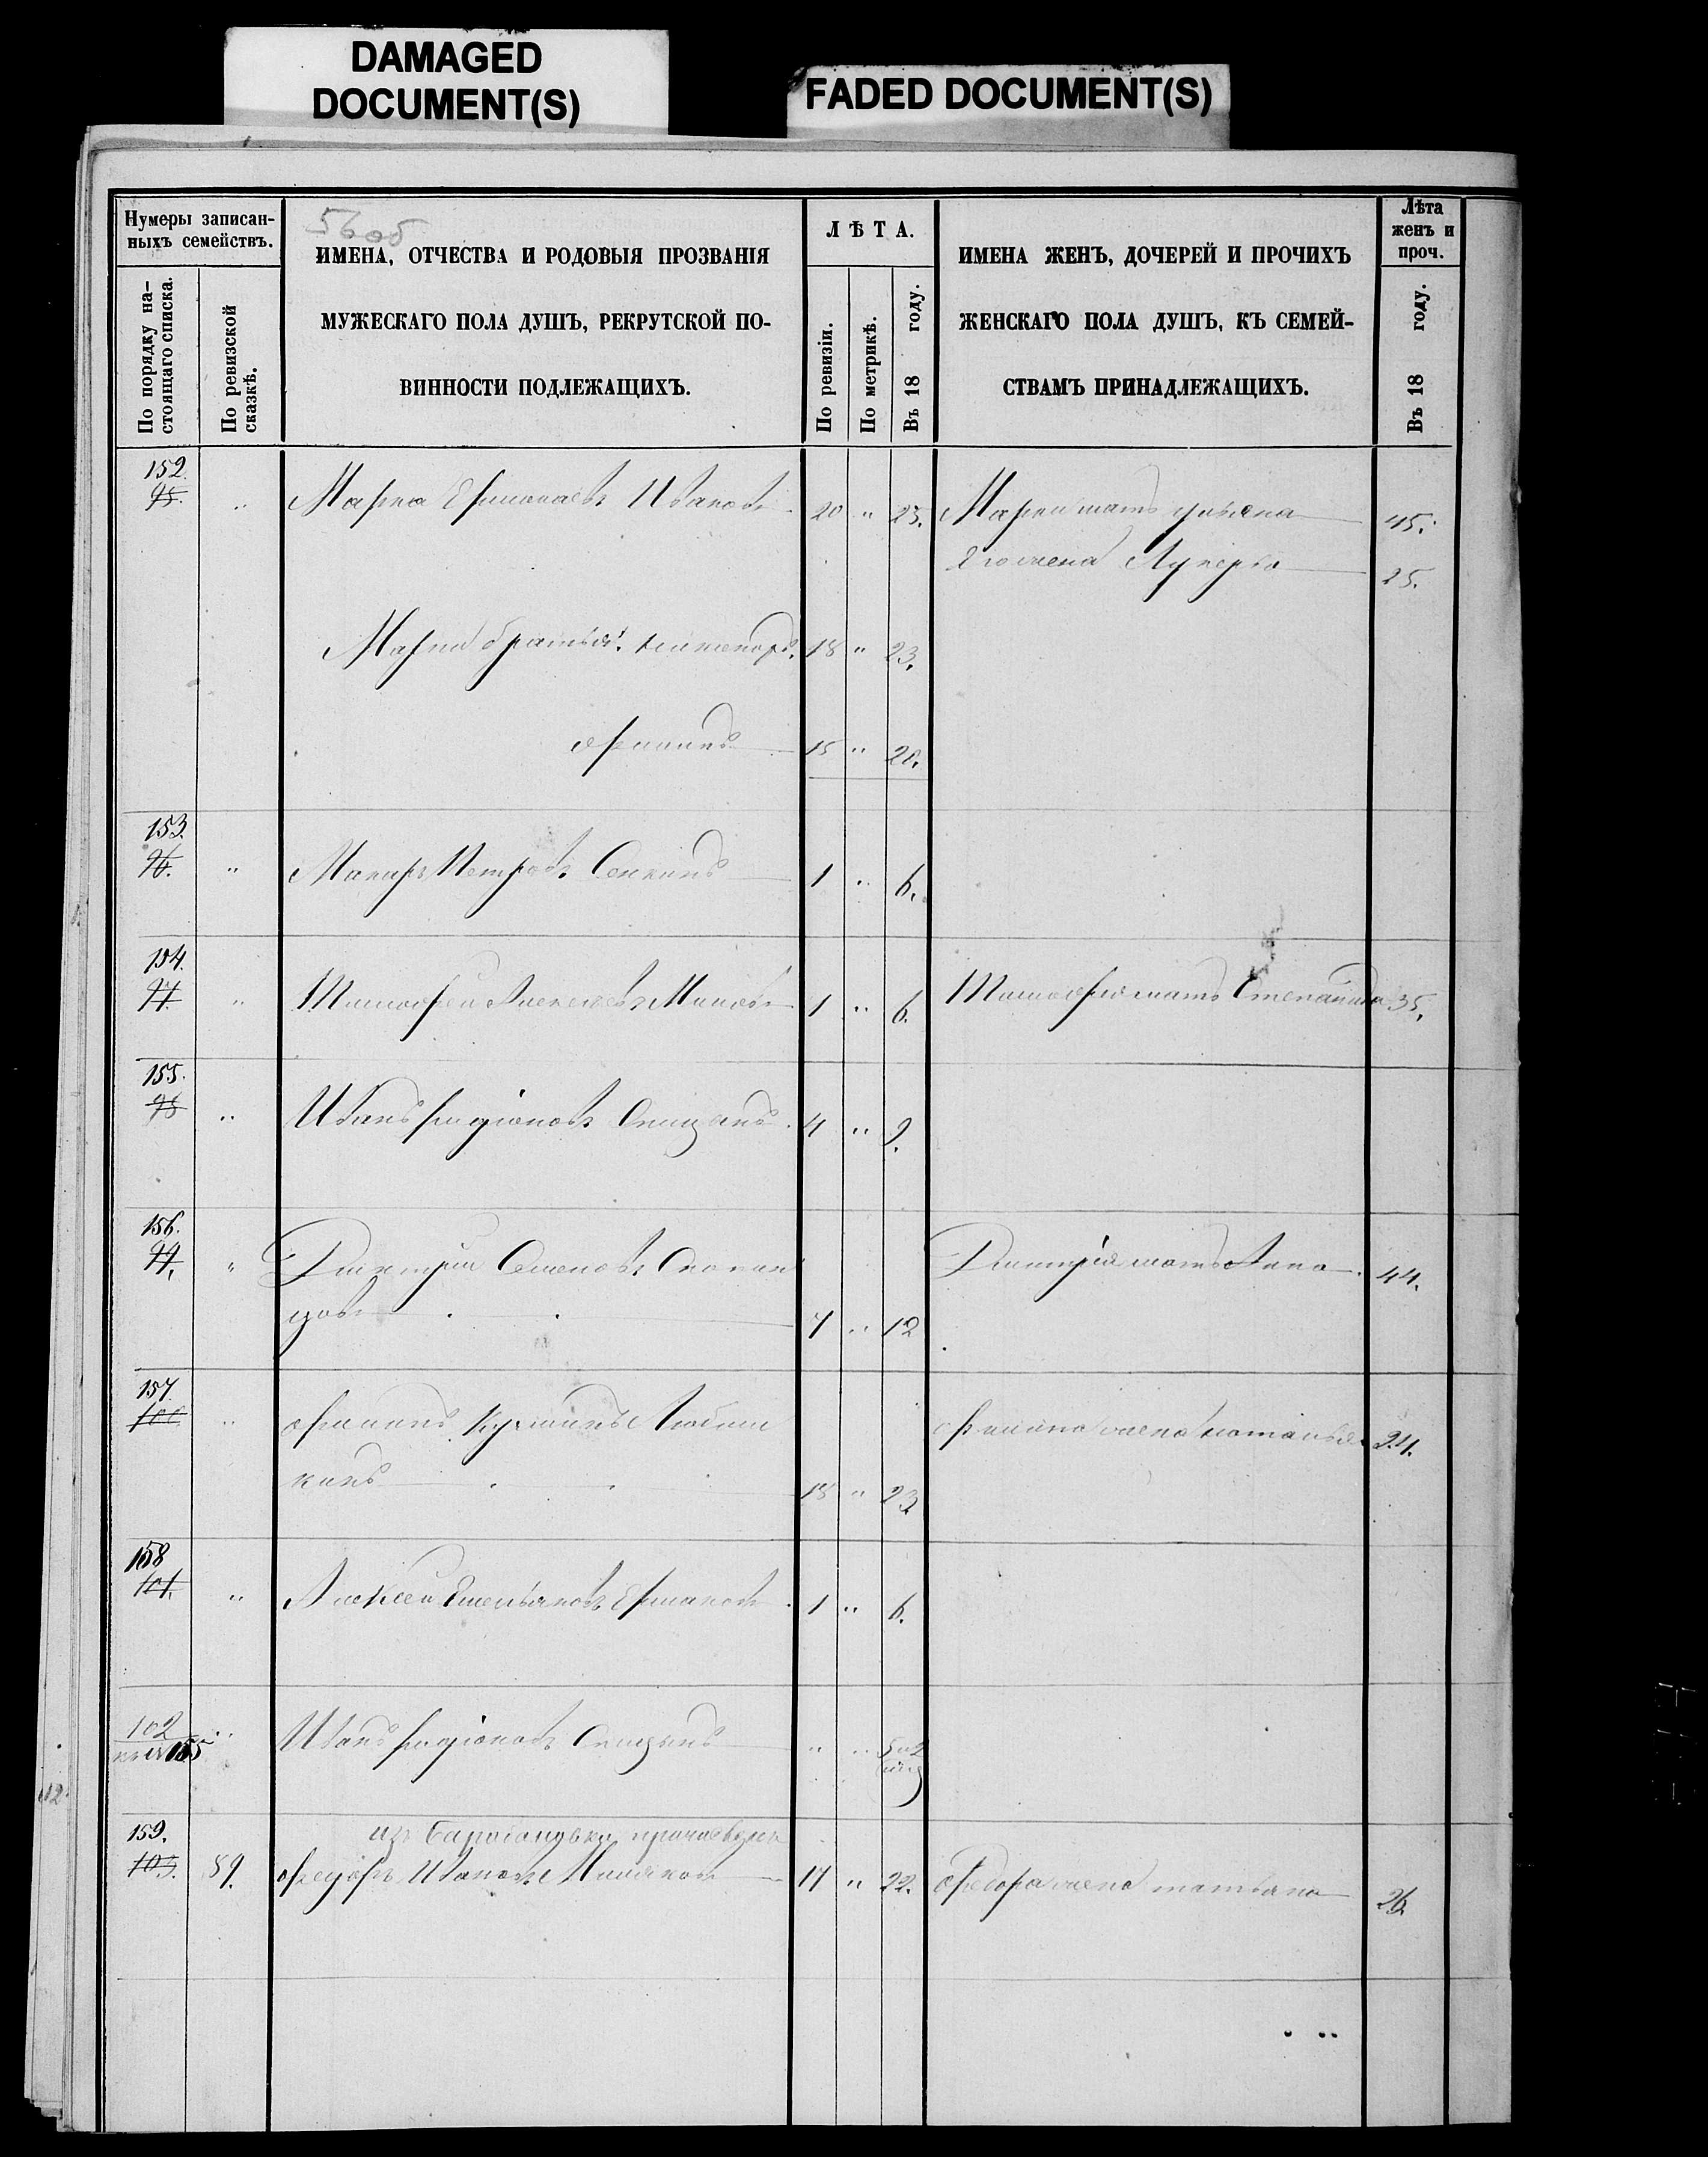 DAMAGED
DOCUMENT(S)
FADED DOCUMENT(S)
56 об
Нумеры записан-
ныхъ семействъ.
По порядку на-
стоящаго списка.
По ревизской
сказкѣ.
ИМЕНА, ОТЧЕСТВА И РОДОВЫЯ ПРОЗВАНІЯ
МУЖЕСКАГО ПОЛА ДУШЪ, РЕКРУТСКОЙ ПО-
ВИННОСТИ ПОДЛЕЖАЩИХЪ.
ЛѢТА.
По ревизіи.
По метрикѣ.
Въ 18 году.
ИМЕНА ЖЕНЪ, ДОЧЕРЕЙ И ПРОЧИХЪ
ЖЕНСКАГО ПОЛА ДУШЪ, КЪ СЕМЕЙ-
СТВАМЪ ПРИНАДЛЕЖАЩИХЪ.
Лѣта
женъ и
проч.
Въ 18 году.
152.
95. " Марка Ивановъ 20 " 25. Марки мать Ульяна 45.
Его жена Лукерья 25.
Марки братья: Никаноръ. 18 " 23.
Филипъ 15 " 20.
153.
96. " Макаръ Петровъ 1 " 6.
154.
97. " Тимофей Алексеевъ 1 " 6. Тимофея мать Степанида 35.
155.
98 " Иванъ Родіоновъ 4 " 9.
156.
99. " Дмитрій Семеновъ
7 " 12 Дмитрія мать Анна 44.
157.
100 " Филипъ Кузминъ
кинъ 18 " 23 Филипа жена Наталья 24.
158
101. " Алексей Емельяновъ Ермаковъ 1 " 6.
102
155 " Иванъ Родіоновъ " "
159.
изъ
103. 89. Федоръ Ивановъ 17 " 22. Федора жена Татьяна 26.